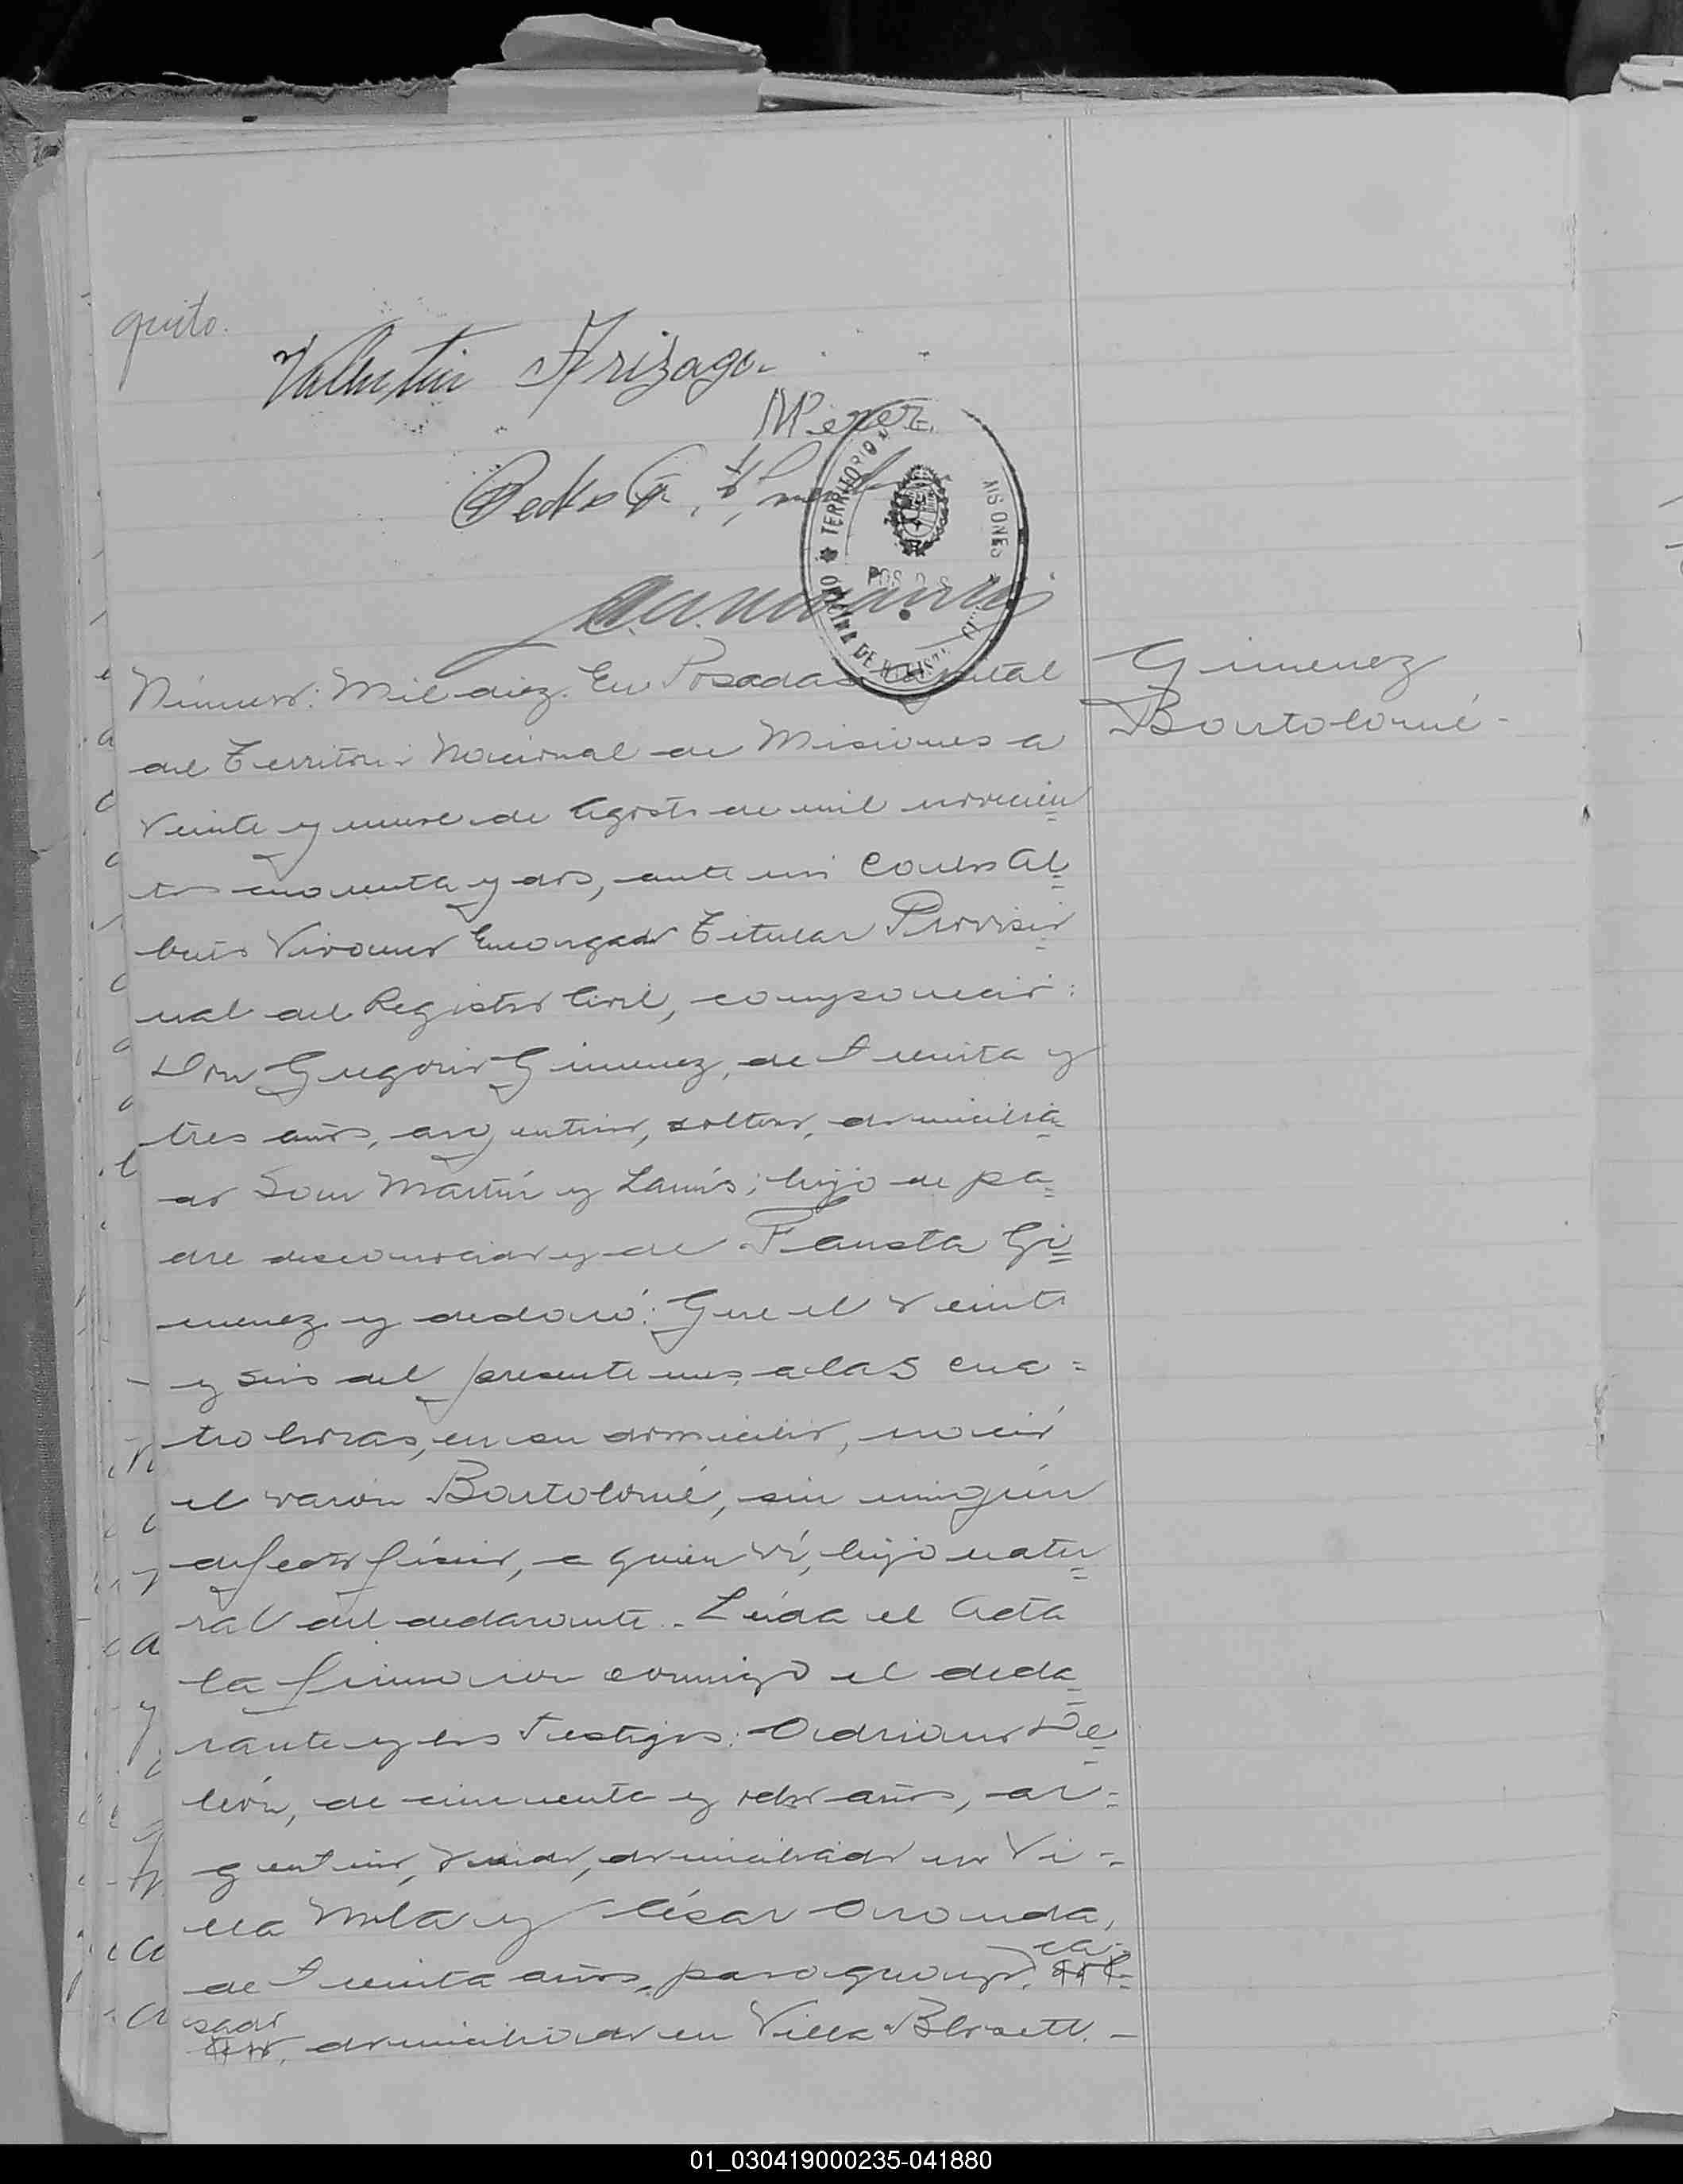 quito.
Valentin Arizaga
Merez
Pedro
TERRITORIO MISIONES
OFICINA DE
POSADAS
Número: Mil diez. En Posadas Capital
del Territorio Nacional de Misiones a
veinte y nueve de Agosto de mil novecien
tos cuarenta y dos, ante mi Carlos Al
berto Vivanco Encargado Titular Provisio
nal del Registro Civil, compareció:
Don Gregorio Gimenez, de treinta y
tres años, argentino, soltero, domicilia
do San Martín y Lanús; hijo de pa
dre desconocido y de Fausta Gi
menez y declaró: Que el veinte
y seis del presente mes, a las cua=
tro horas, en su domicilio, nació
el varón Bartolomé, sin ningún
defecto físico, a quien ví, hijo natu
ral del declarante.- Leída el Acta
la firmaron conmigo el decla
rante y los testigos: Adriano De
león, de cincuenta y ocho años, ar=
gentino, viudo, domiciliado en Vi=
lla Mola y César Arouda,
de treinta años, paraguayo, ca=
sado domiciliado en Villa Blosett.-
Gimenez
Bartolomé-
01_030419000235-041880